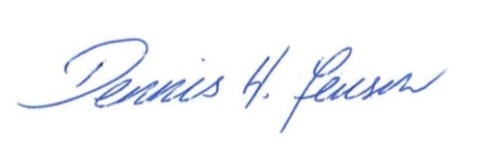 Dennis H. Jensen